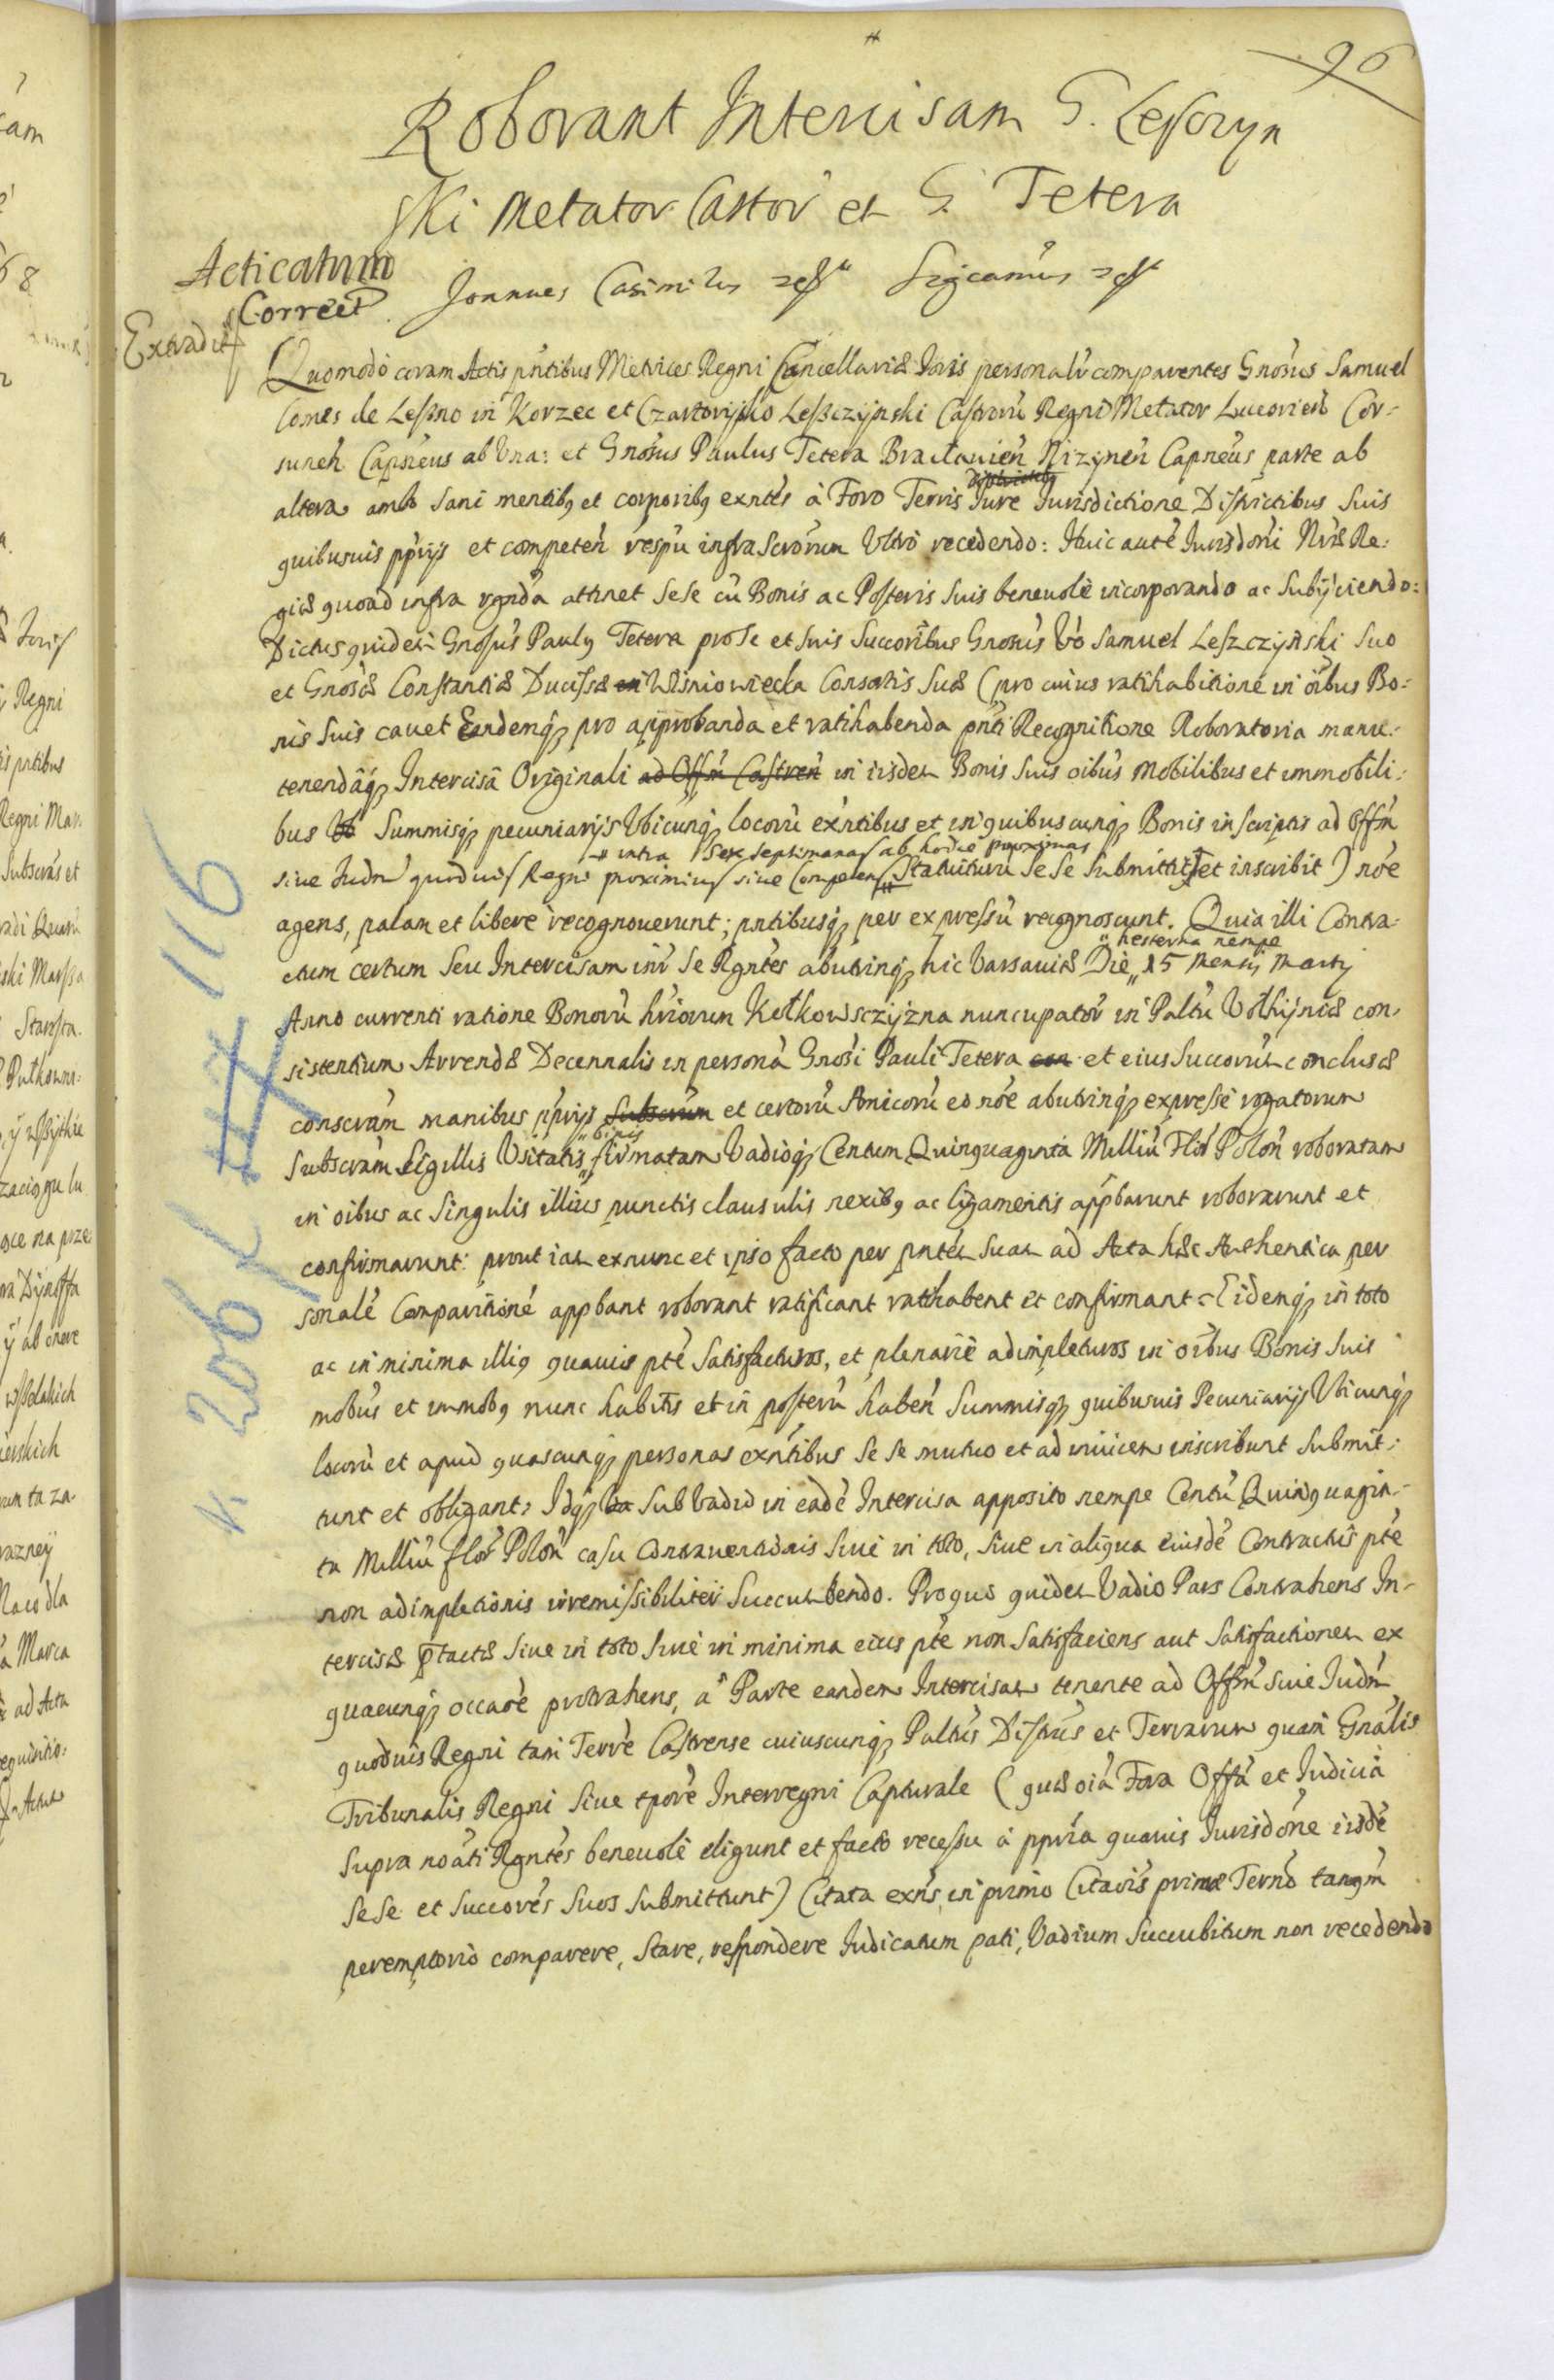 96
Roborant Intercisam G. Leszczyn
ski Metator Castror et G. Tetera
Acticatum
Correct
Extradit
Joannes Casimirus Significamus
Quomodo coram Actis pntibus Metrices Regni Cancellariæ Nris personalr comparentes Gnosus Samuel
Comes de Leszno in Korzec et Czartoryjsko Leszczyński Castroru Regni Metator Luceorien Cor-
sunen Capneus ab Una: et Gnosus Paulus Tetera Bractavien Niżynen Capneus parte ab
altera ambo sani mentibq et corporibq exntes à Foro Terris Jure Jurisdictione Districtibus suis
quibusuis pprijs et competen respu infra scrorum Ultro recedendo: Huic aute Jurisdoni Nræ Re-
giæ quoad infra rgnda attinet sese cu Bonis ac Posteris suis beneuolè incorporando ac subijciendo:
Dictus quidem Gnosus Paulq Tetera pro se et suis Succoribus Gnosus Vo Samuel Leszczyński suo
et Gnosæ Constantiæ Ducissæ Wisniowiecka Consortis suæ (pro cuius ratihabitione in oibus Bo-
nis suis cauet Eandemq pro approbanda et ratihabenda pnti Recognitione Roboratoria manu-
tenendâq Intercisâ Originali ad Offm Castren in iisdem Bonis suis oibus mobilibus et immobili-
bus Summisq pecuniarijs Ubicunq locoru exntibus et in quibuscunq Bonis inscriptis ad Offm
intra sex septimanas ab hodie proximas
siue Judm quoduis Regni proximius siue Competens Statuituru se se submittit et inscribit) noe
agens, palam et libere recognouerunt; pntibusq per expressu recognoscunt. Quia illi Contra-
hesterna nempe
ctum certum seu Intercisam inr se Rgntes abutrinq hic Varsauiæ Die 15 Mensis Martij
Anno currenti ratione Bonoru hriorum Kołkowsczyżna nuncupator in Paltu Volhyniæ con-
sistentium Arrendæ Decennalis in persona Gnosi Pauli Tetera et eius Succorum conclusæ
conscram manibus pprijs Subscram et certoru Amicoru eo noe abutrinq expresse rogatorum
binis
Subscram Sigillis Usitatis firmatam Vadioq Centum Quinquaginta Milliu Flor Polon roboratam
in oibus ac singulis illius punctis clausulis nexibq ac ligamentis appbarunt roborarunt et
confirmarunt: prout iam exnunc et ipso facto per pntem suam ad Acta hæc Authentica per
sonale Comparitione appbant roborant ratificant ratihabent et confirmant. Eidemq in toto
ac in minima illiq quauis pte satisfacturos, et plenariè adimpleturos in oibus Bonis suis
mobus et immobq nunc habitis et in posteru haben Summisq quibusuis Pecuniarijs Ubicunq
locoru et apud quascunq personas exntibus se se mutuo et ad inuicem inscribunt submit-
tunt et obligant, Idq sub Vadio in eade Intercisa apposito nempe Centu Quinquagin-
ta Milliu flor Polon casu contrauentionis siue in toto, siue in aliqua eiusde Contractus pte
non adimpletionis irremissibiliter succumbendo. Pro quo quidem Vadio Pars Contrahens In-
tercisæ ptactæ siue in toto siue in minima eius pte non satisfaciens aut satisfactionem ex
quacunq occaoe protrahens, à Parte eandem Intercisam tenente ad Offm siue Judm
quoduis Regni tam Terre Castrense cuiuscunq Paltus Distrus et Terrarum quam Gnalis
Tribunalis Regni siue tpore Interregni Capturale (quæ oia Fora Offa et Judicia
supra noati Rgntes beneuolè eligunt et facto recessu à ppria quauis Jurisdone iisde
sese et Succores suos submittunt) Citata exns in primo Citaois primæ Terno tanqm
peremptorio comparere, stare, respondere Judicatum pati, Vadium succubitum non recedendo
k. 206 116